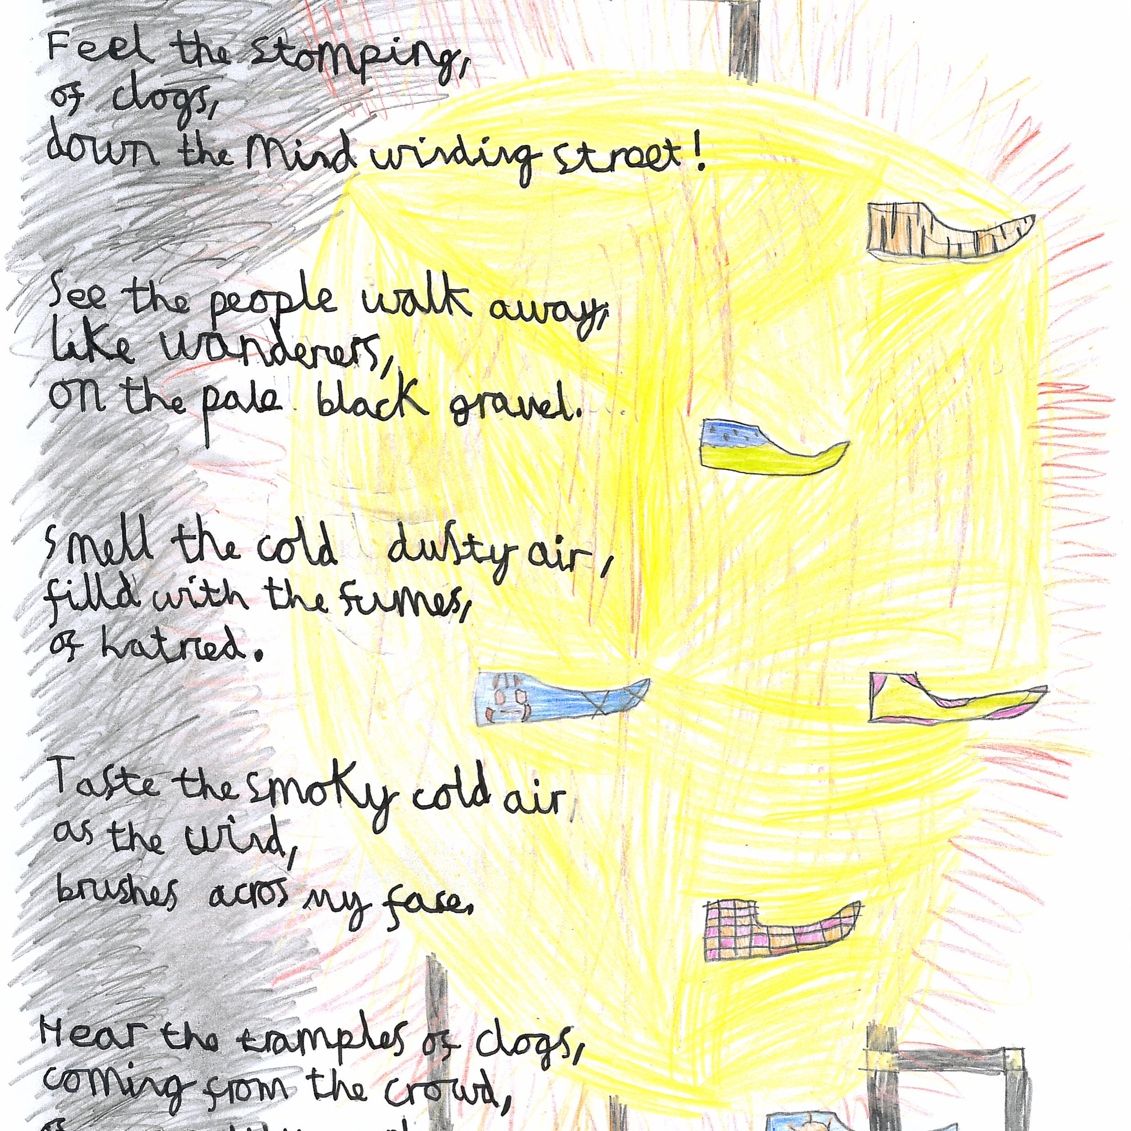 Feel the stomping,
of clogs,
down the Mind winding street!
See the people walk away,
like wanderers,
on the pale black gravel.
Smell the cold dusty air,
filld with the fumes,
of hatried.
Taste the smoky cold air,
as the wind,
brushes acros my fase.
Hear the tramples of clogs,
coming from the crowd,
of